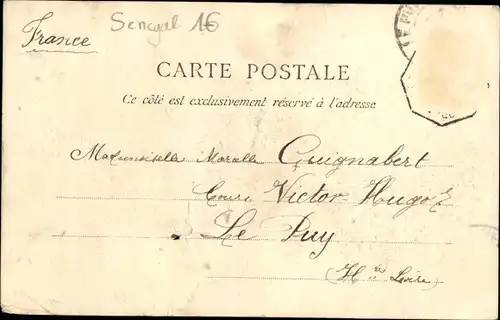 Senegal 16
France
CARTE POSTALE
Ce côté est exclusivement réservé à l'adresse
Mademoiselle Marcelle Guignabert
Cours Victor-Hugo
Le Puy
(Hte Loire)